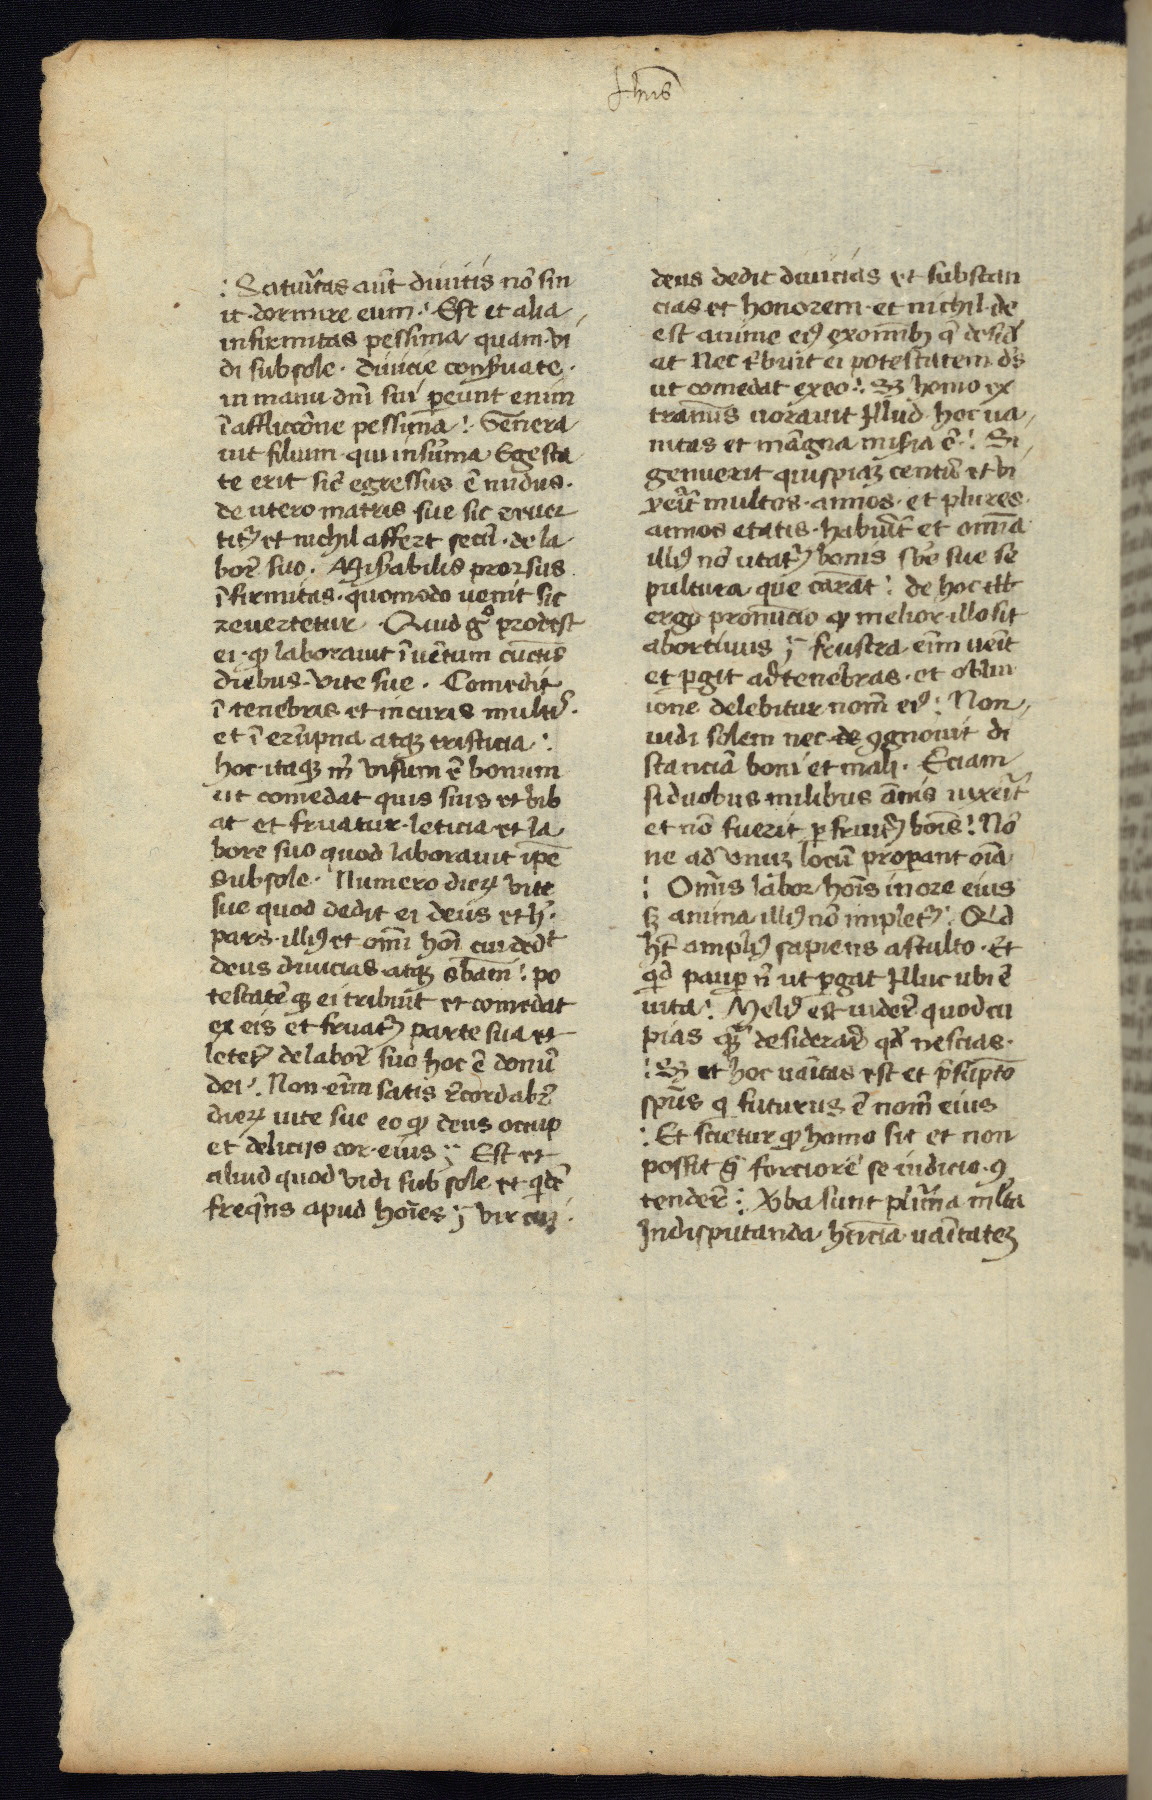 Jhus
: Satur̄itas aūt diuitis nō sin
it dormire eum : Est et alia
infirmitas pessima quam vi
di sub sole · diuicie conẜuate
in manu dn̄i sui p̲eunt enim
ī affliccōne pessima : Genera
uit filium qui in sūma Egesta
te erit sic̄ egressus ē nudus ·
de utero matris sue sic reuer
tit᷑ et nichil affert secū · de la
bor̄ suo · Miẜabilis prorsus
īfirmitas · quomodo uenit sic
reuertetur · Quid gᵒ prodest
ei · ꝙ laborauit ī uētum cūctis
diebus vite sue · Comedit
ī tenebris et in curis multꝭ ·
et ī erūpna atqꝫ tristicia :
hoc itaqꝫ m̄ visum ē bonum
ut comedat quis suis et bib
at et fruatur · leticia et la
bore suo quod laborauit ip̄e
sub sole · Numero dieꝝ vite
sue quod dedit ei deus et h̄ ·
pars · illiꝰ et om̄i hoī cui dedᵗ
deus diuicias atqꝫ sb̄am : po
testatē qꝫ ei tribuit et comedat
ex eis et fruat᷑ parte sua et
letet᷑ de labor̄ suo hoc ē donū
dei : Non enī satis r̄cordabr̄
dieꝝ uite sue eo ꝙ deus occup
et delicijs cor eius ;; Est et
aliud quod vidi sub sole et qͥdē
freq̄ns apud hoīes ; vir cui ·
deus dedit diuicias et substan
cias et honorem · et nichil de
est anime eiꝰ ex om̄ibꝫ q̄ desid̄
at Nec tͥbuit ei potestatem d̄s
ut comedat ex eo : Sꝫ homo ex
tran̄is uorauit Illud · hoc ua
nitas et māgna miẜia ē : Si
genuerit quispiaꝫ centū et vi
xeīt multos · annos · et plures
annos etatis · habuīt et om̄ia
illiꝰ nō utat᷑ bonis sb̄e sue se
pultura que careat : de hoc
ergo pronūcio ꝙ melior illo sit
abortiuus ; frustra enī ueīt
et p̲git ad tenebras · et obliu
ione delebitur nom̄ eiꝰ : Non
uidi solem nec de ꝯgnouit di
stanciā boni et mali · Eciam
si duobus milibus ān̄is uixeīt
et nō fuerit p̲fruit᷑ boīs : Nō
ne ad vnuꝫ locū prop̲ant oīa
: Om̄is labor hoīs in ore eius
sꝫ anima illiꝰ nō implet᷑ : Qͥd
hꝫt ampliꝰ sapiens a stulto · Et
qͥd paup̲ n̄ ut p̲gat Illuc ubi ē
uita : Meliꝰ est uider̄ quod cu
pias qͣꝫ desiderar̄ qd̄ nescias ·
: Sꝫ et hoc uaītas est et p̄sūpto
spūs q futurus ē nom̄ eius
: Et scietur ꝙ homo sit et non
possit ꝯͣ forciorē se in dicio · ꝯ
tender̄ : Vba sunt plūrīa mlͣta
In disputanda hn̄cia uaītateꝫ